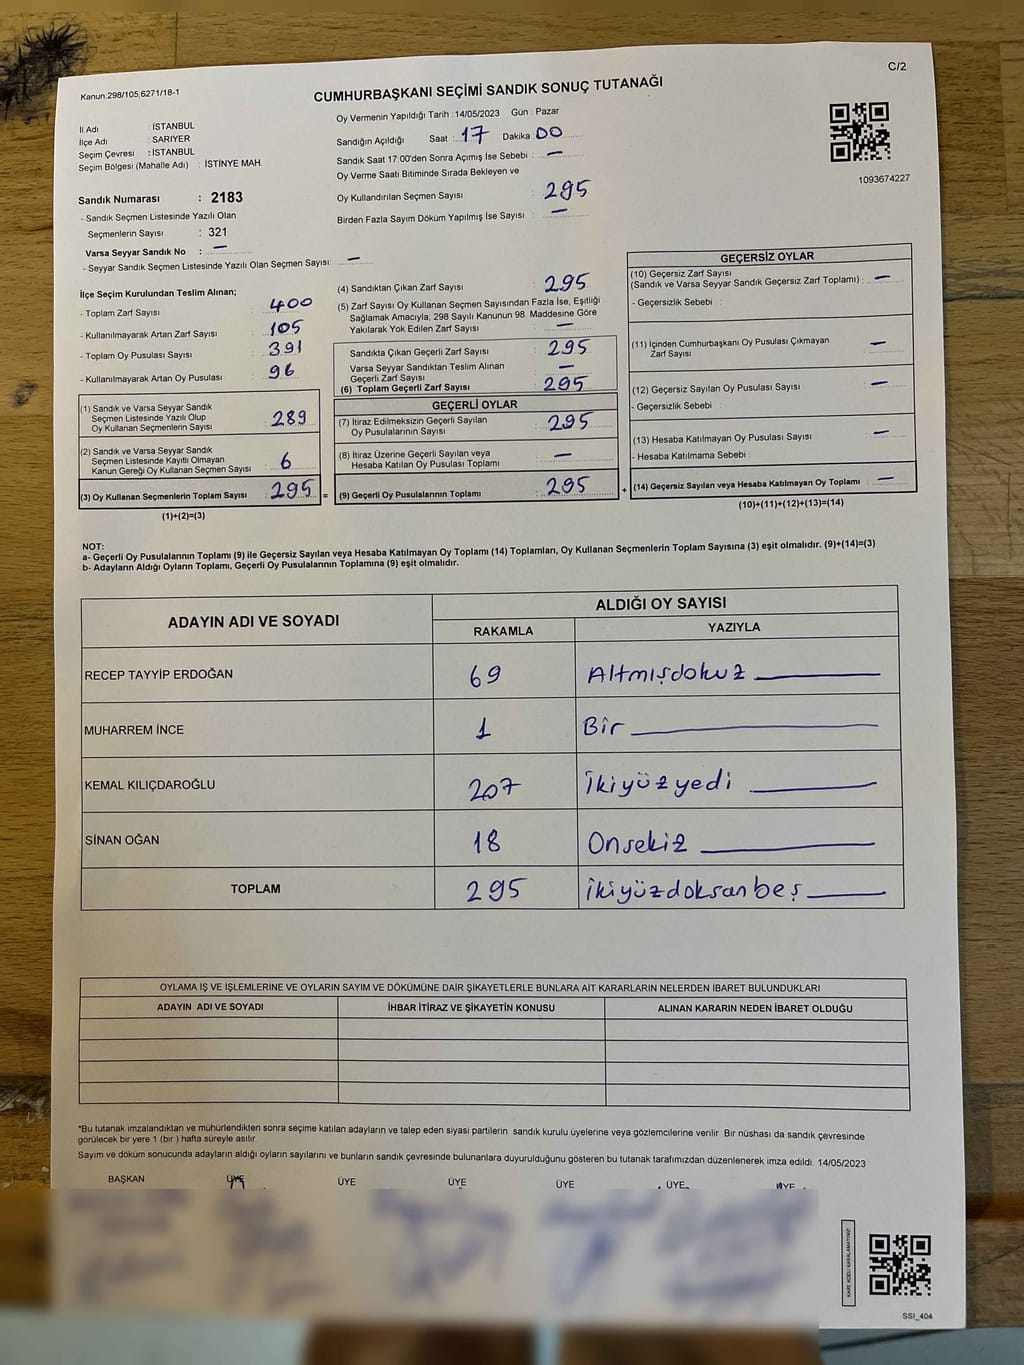 C/2
Kanun.298/105,6271/18-1
CUMHURBAŞKANI SEÇİMİ SANDIK SONUÇ TUTANAĞI
Oy Vermenin Yapıldığı Tarih :14/05/2023 Gün : Pazar
İl Adı : İSTANBUL
İlçe Adı : SARIYER
Seçim Çevresi : İSTANBUL
Seçim Bölgesi (Mahalle Adı) : İSTİNYE MAH.
Sandığın Açıldığı Saat : 17 Dakika 00
Sandık Saat 17:00'den Sonra Açımış İse Sebebi : —
Oy Verme Saati Bitiminde Sırada Bekleyen ve
Oy Kullandırılan Seçmen Sayısı : 295
Birden Fazla Sayım Döküm Yapılmış İse Sayısı : —
1093674227
Sandık Numarası : 2183
- Sandık Seçmen Listesinde Yazılı Olan
Seçmenlerin Sayısı : 321
Varsa Seyyar Sandık No : —
- Seyyar Sandık Seçmen Listesinde Yazılı Olan Seçmen Sayısı: —
İlçe Seçim Kurulundan Teslim Alınan;
- Toplam Zarf Sayısı : 400
- Kullanılmayarak Artan Zarf Sayısı : 105
- Toplam Oy Pusulası Sayısı : 391
- Kullanılmayarak Artan Oy Pusulası : 96
(1) Sandık ve Varsa Seyyar Sandık
Seçmen Listesinde Yazılı Olup
Oy Kullanan Seçmenlerin Sayısı : 289
(2) Sandık ve Varsa Seyyar Sandık
Seçmen Listesinde Kayıtlı Olmayan
Kanun Gereği Oy Kullanan Seçmen Sayısı : 6
(3) Oy Kullanan Seçmenlerin Toplam Sayısı : 295 =
(1)+(2)=(3)
(4) Sandıktan Çıkan Zarf Sayısı : 295
(5) Zarf Sayısı Oy Kullanan Seçmen Sayısından Fazla İse, Eşitliği
Sağlamak Amacıyla, 298 Sayılı Kanunun 98. Maddesine Göre
Yakılarak Yok Edilen Zarf Sayısı : —
Sandıkta Çıkan Geçerli Zarf Sayısı : 295
Varsa Seyyar Sandıktan Teslim Alınan
Geçerli Zarf Sayısı : —
(6) Toplam Geçerli Zarf Sayısı : 295
GEÇERLİ OYLAR
(7) İtiraz Edilmeksizin Geçerli Sayılan
Oy Pusulalarının Sayısı : 295
(8) İtiraz Üzerine Geçerli Sayılan veya
Hesaba Katılan Oy Pusulası Toplamı : —
(9) Geçerli Oy Pusulalarının Toplamı : 295 +
GEÇERSİZ OYLAR
(10) Geçersiz Zarf Sayısı
(Sandık ve Varsa Seyyar Sandık Geçersiz Zarf Toplamı) : —
- Geçersizlik Sebebi :
(11) İçinden Cumhurbaşkanı Oy Pusulası Çıkmayan
Zarf Sayısı : —
(12) Geçersiz Sayılan Oy Pusulası Sayısı : —
- Geçersizlik Sebebi :
(13) Hesaba Katılmayan Oy Pusulası Sayısı : —
- Hesaba Katılmama Sebebi :
(14) Geçersiz Sayılan veya Hesaba Katılmayan Oy Toplamı : —
(10)+(11)+(12)+(13)=(14)
NOT:
a- Geçerli Oy Pusulalarının Toplamı (9) ile Geçersiz Sayılan veya Hesaba Katılmayan Oy Toplamı (14) Toplamları, Oy Kullanan Seçmenlerin Toplam Sayısına (3) eşit olmalıdır. (9)+(14)=(3)
b- Adayların Aldığı Oyların Toplamı, Geçerli Oy Pusulalarının Toplamına (9) eşit olmalıdır.
ADAYIN ADI VE SOYADI ALDIĞI OY SAYISI
RAKAMLA YAZIYLA
RECEP TAYYİP ERDOĞAN 69 Altmışdokuz
MUHARREM İNCE 1 Bir
KEMAL KILIÇDAROĞLU 207 İkiyüzyedi
SİNAN OĞAN 18 Onsekiz
TOPLAM 295 ikiyüzdoksanbeş
OYLAMA İŞ VE İŞLEMLERİNE VE OYLARIN SAYIM VE DÖKÜMÜNE DAİR ŞİKAYETLERLE BUNLARA AİT KARARLARIN NELERDEN İBARET BULUNDUKLARI
ADAYIN ADI VE SOYADI İHBAR İTİRAZ VE ŞİKAYETİN KONUSU ALINAN KARARIN NEDEN İBARET OLDUĞU
*Bu tutanak imzalandıktan ve mühürlendikten sonra seçime katılan adayların ve talep eden siyasi partilerin sandık kurulu üyelerine veya gözlemcilerine verilir. Bir nüshası da sandık çevresinde
görülecek bir yere 1 (bir ) hafta süreyle asılır.
Sayım ve döküm sonucunda adayların aldığı oyların sayılarını ve bunların sandık çevresinde bulunanlara duyurulduğunu gösteren bu tutanak tarafımızdan düzenlenerek imza edildi. 14/05/2023
BAŞKAN ÜYE ÜYE ÜYE ÜYE ÜYE ÜYE
KARE KODU KARALAMAYINIZ!
SSI_404